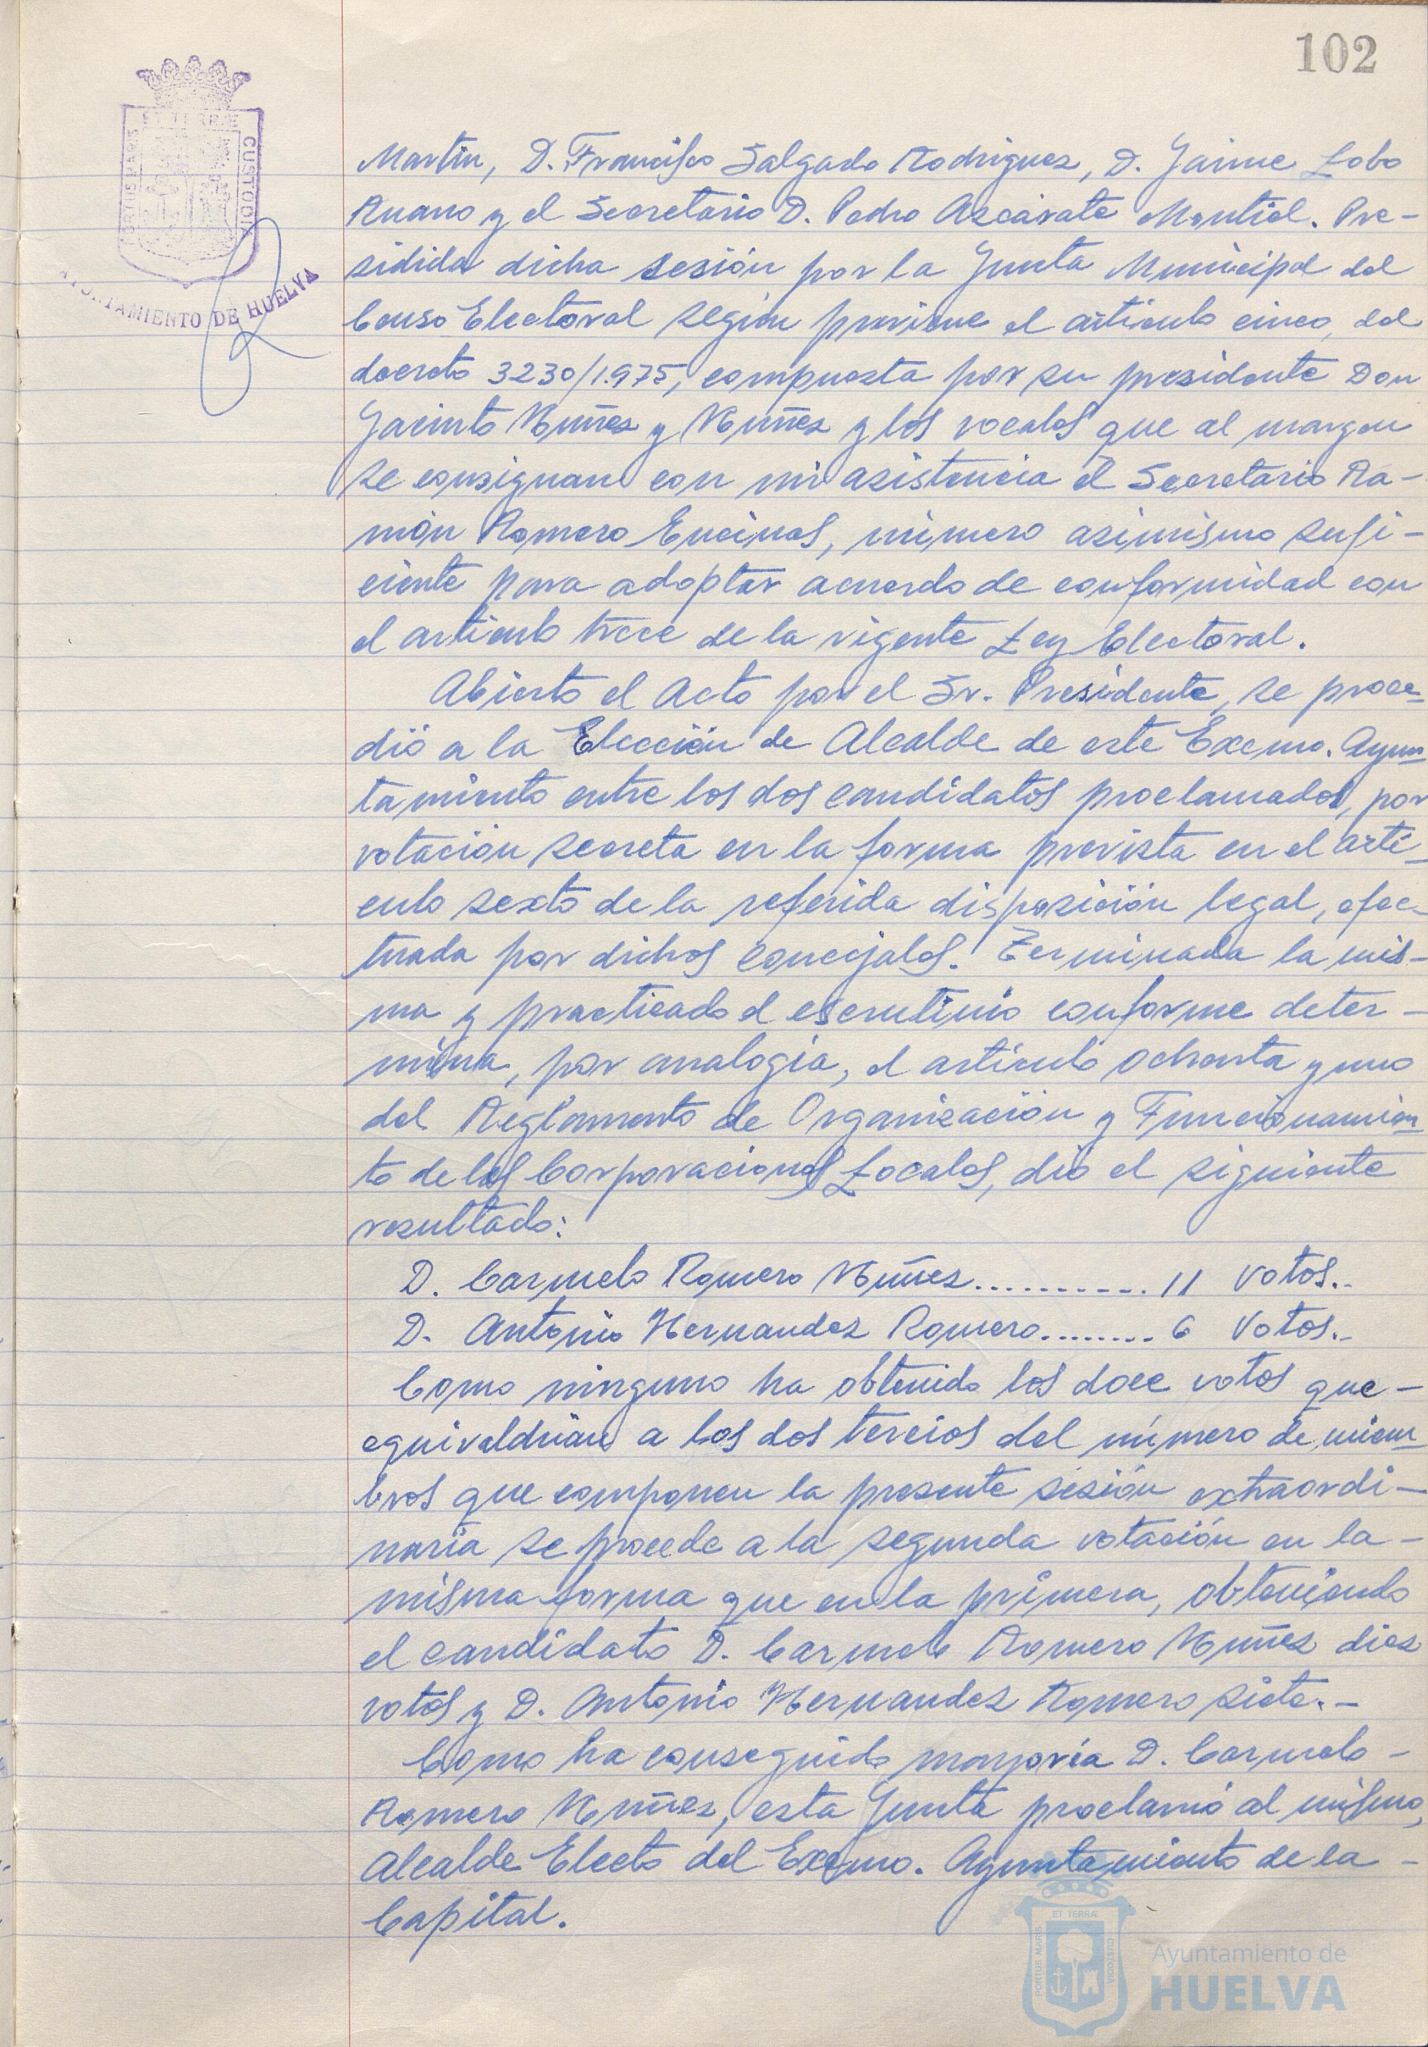 102
ET TERRÆ
PORTUS MARIS
CUSTODIA
AYUNTAMIENTO DE HUELVA
Martín, D. Francisco Salgado Rodriguez, D. Jaime Lobo
Ruano y el Secretario D. Pedro Azcárate Montiel. Pre-
sidida dicha sesión por la Junta Municipal del
Censo Electoral según previene el artículo cinco, del
decreto 3230/1.975, compuesta por su presidente Don
Jacinto Nuñez y Nuñez y los vocales que al margen
se consignan con mi asistencia el Secretario Ra-
món Romero Encinas, número asimismo sufi-
ciente para adoptar acuerdo de conformidad con
el artículo trece de la vigente Ley Electoral.
Abierto el Acto por el Sr. Presidente, se proce-
dió a la Elección de Alcalde de este Excmo. Ayun-
tamiento entre los dos candidatos proclamados, por
votación secreta en la forma prevista en el artí-
culo sexto de la referida disposición legal, efec-
tuada por dichos concejales. Terminada la mis-
ma y practicado el escrutinio conforme deter-
mina, por analogía, el artículo ochenta y uno
del Reglamento de Organización y Funcionamien-
to de las Corporaciones Locales, dió el siguiente
resultado:
D. Carmelo Romero Nuñez........... 11 votos.-
D. Antonio Hernandez Romero........ 6 votos.-
Como ninguno ha obtenido los doce votos que-
equivaldrían a los dos tercios del número de miem-
bros que componen la presente sesión extraordi-
naria se procede a la segunda votación en la-
misma forma que en la primera, obteniendo
el candidato D. Carmelo Romero Nuñez diez
votos y D. Antonio Hernandez Romero siete.-
Como ha conseguido mayoría D. Carmelo-
Romero Nuñez, esta Junta proclamó al mismo,
Alcalde Electo del Excmo. Ayuntamiento de la-
Capital.
ET TERRA
PORTUS MARIS
CUSTODIA
Ayuntamiento de
HUELVA